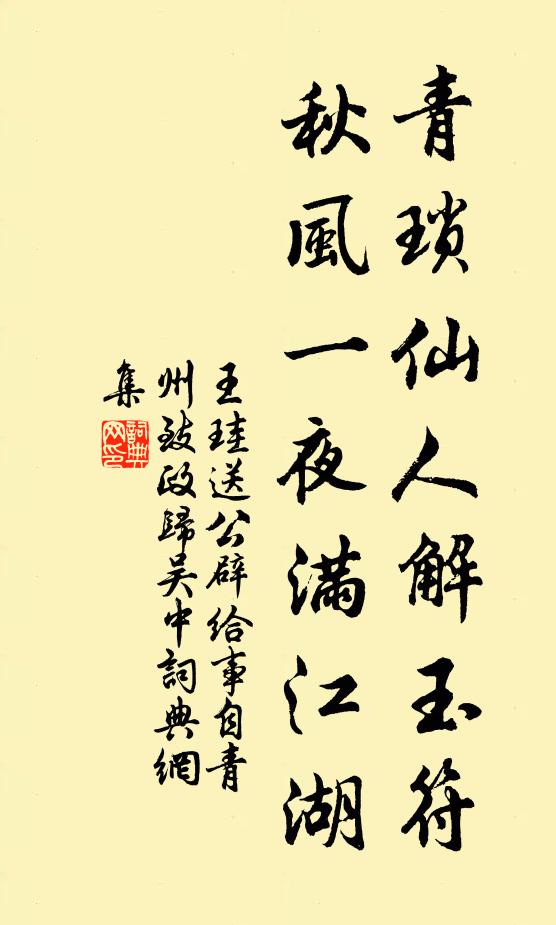 青瑣仙人解玉符
秋風一夜滿江湖
王珪送公辟給事自青
州致政歸吳中詞典網
集
詞典
网印